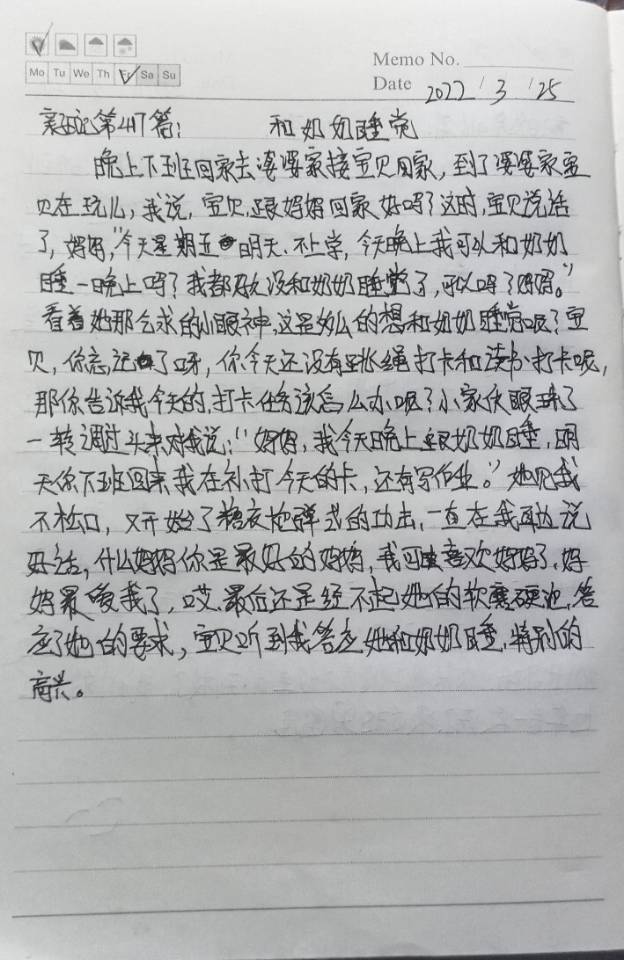 Mo Tu We Th Fr Sa Su
Memo No.
Date 2022/3/25
亲子日记第417篇： 和奶奶睡觉
晚上下班回家去婆婆家接宝贝回家，到了婆婆家宝
贝在玩儿，我说，宝贝，跟妈妈回家好吗？这时，宝贝说话
了，妈妈，“今天星期五明天不上学，今天晚上我可以和奶奶
睡一晚上吗？我都好久没和奶奶睡觉了，可以吗？妈妈。”
看着她那么求的小眼神，这是多么的想和奶奶睡觉呢？宝
贝，你忘记了呀，你今天还没有跳绳打卡和读书打卡呢，
那你告诉我今天的，打卡任务该怎么办呢？小家伙眼珠了
一转调过头来对我说：“妈妈，我今天晚上跟奶奶睡，明
天你下班回来我在补打今天的卡，还有写作业。”她见我
不松口，又开始了糖衣炮弹式的功击，一直在我耳边说
好话，什么妈妈你是最好的妈妈，我可喜欢妈妈了，妈
妈最爱我了，哎，最后还是经不起她的软磨硬泡，答
应了她的要求，宝贝听到我答应她和奶奶睡，特别的
高兴。